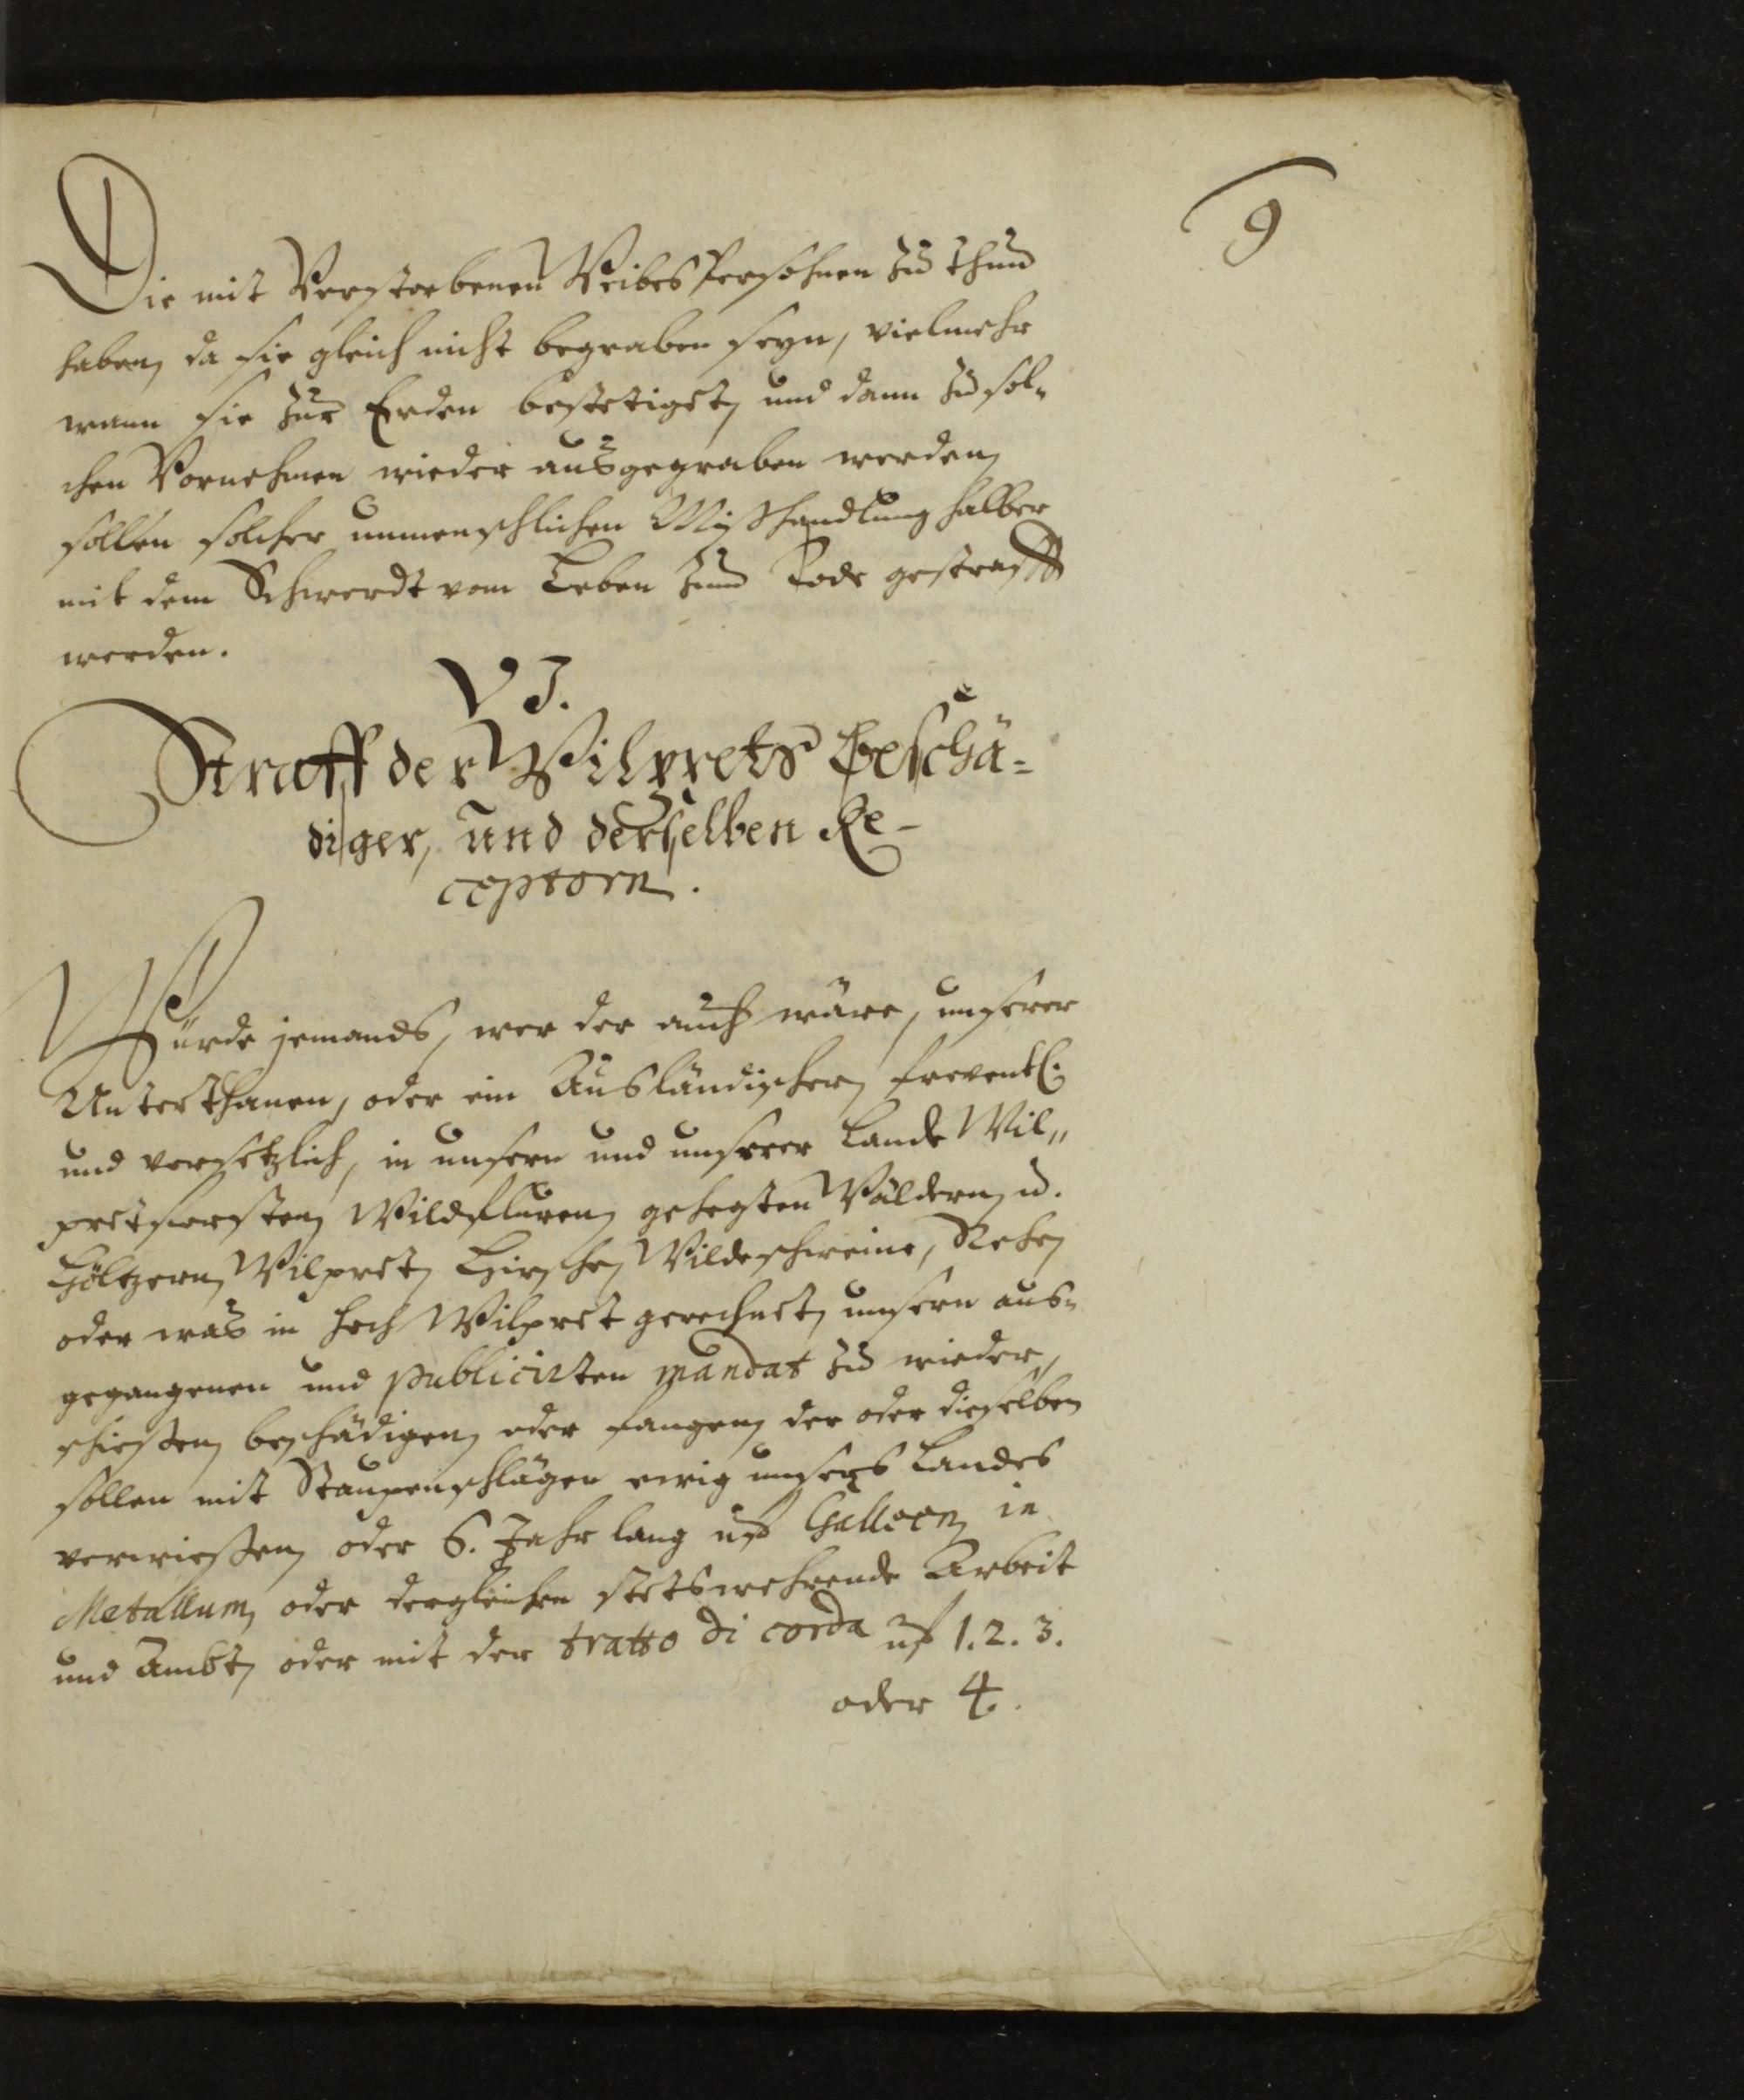 9
Die mit Verstorbenen Weibes Persohnen zu thun
haben, da sie gleich nicht begraben seyn, vielmehr
wann sie zur Erden bestetiget, und dann zu sol-
chen Vornehmen wieder ausgegraben werden,
sollen solcher unmenschlichen Mißhandlung halber
mit dem Schwerdt vom Leben zum Tode gestrafft
werden.
VI.
Straff der Wilprets Beschä-
diger, und derselben Re-
ceptorn.
Würde jemands, wer der auch wäre, unserer
Unterthanen, oder ein Ausländischer, freventl:
und versetzlich, in unsern und unserer Lande Wil„
pretforsten, Wildfluren, gehegten Wäldern, u.
Höltzern, Wilpret, Hirsche, Wildeschweine, Rehe,
oder was in hoch Wilpret gerechnet, unsern aus-
gegangenen und publicirten mandat zu wieder,
schießen, beschädigen, oder fangen, der oder dieselben
sollen mit Staupenschlägen ewig unsers Landes
verwießen, oder 6. Jahr lang uf Galleen, in
Metallum, oder dergleichen stetswehrende Arbeit
und Ambt, oder mit der tratto di corda uf 1. 2. 3.
oder 4.